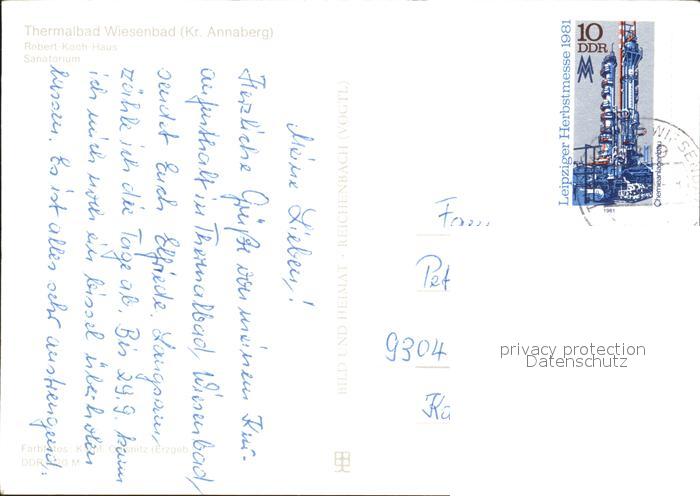 Thermalbad Wiesenbad (Kr. Annaberg)
Robert-Koch-Haus
Sanatorium
Meine Lieben!
Herzliche Grüße von meinem Kur-
aufenthalt in Thermalbad Wiesenbad,
sendet Euch Elfriede. Langsam
zähle ich die Tage ab. Bis 29.9. kann
ich mich noch ein bissel überholen
lassen. Es ist alles sehr anstrengend.
BILD UND HEIMAT · REICHENBACH (VOGTL)
10
DDR
MM
Leipziger Herbstmesse 1981
Chemieanlagenbau
1981
Fam
Pet
9304
Kü
privacy protection
Datenschutz